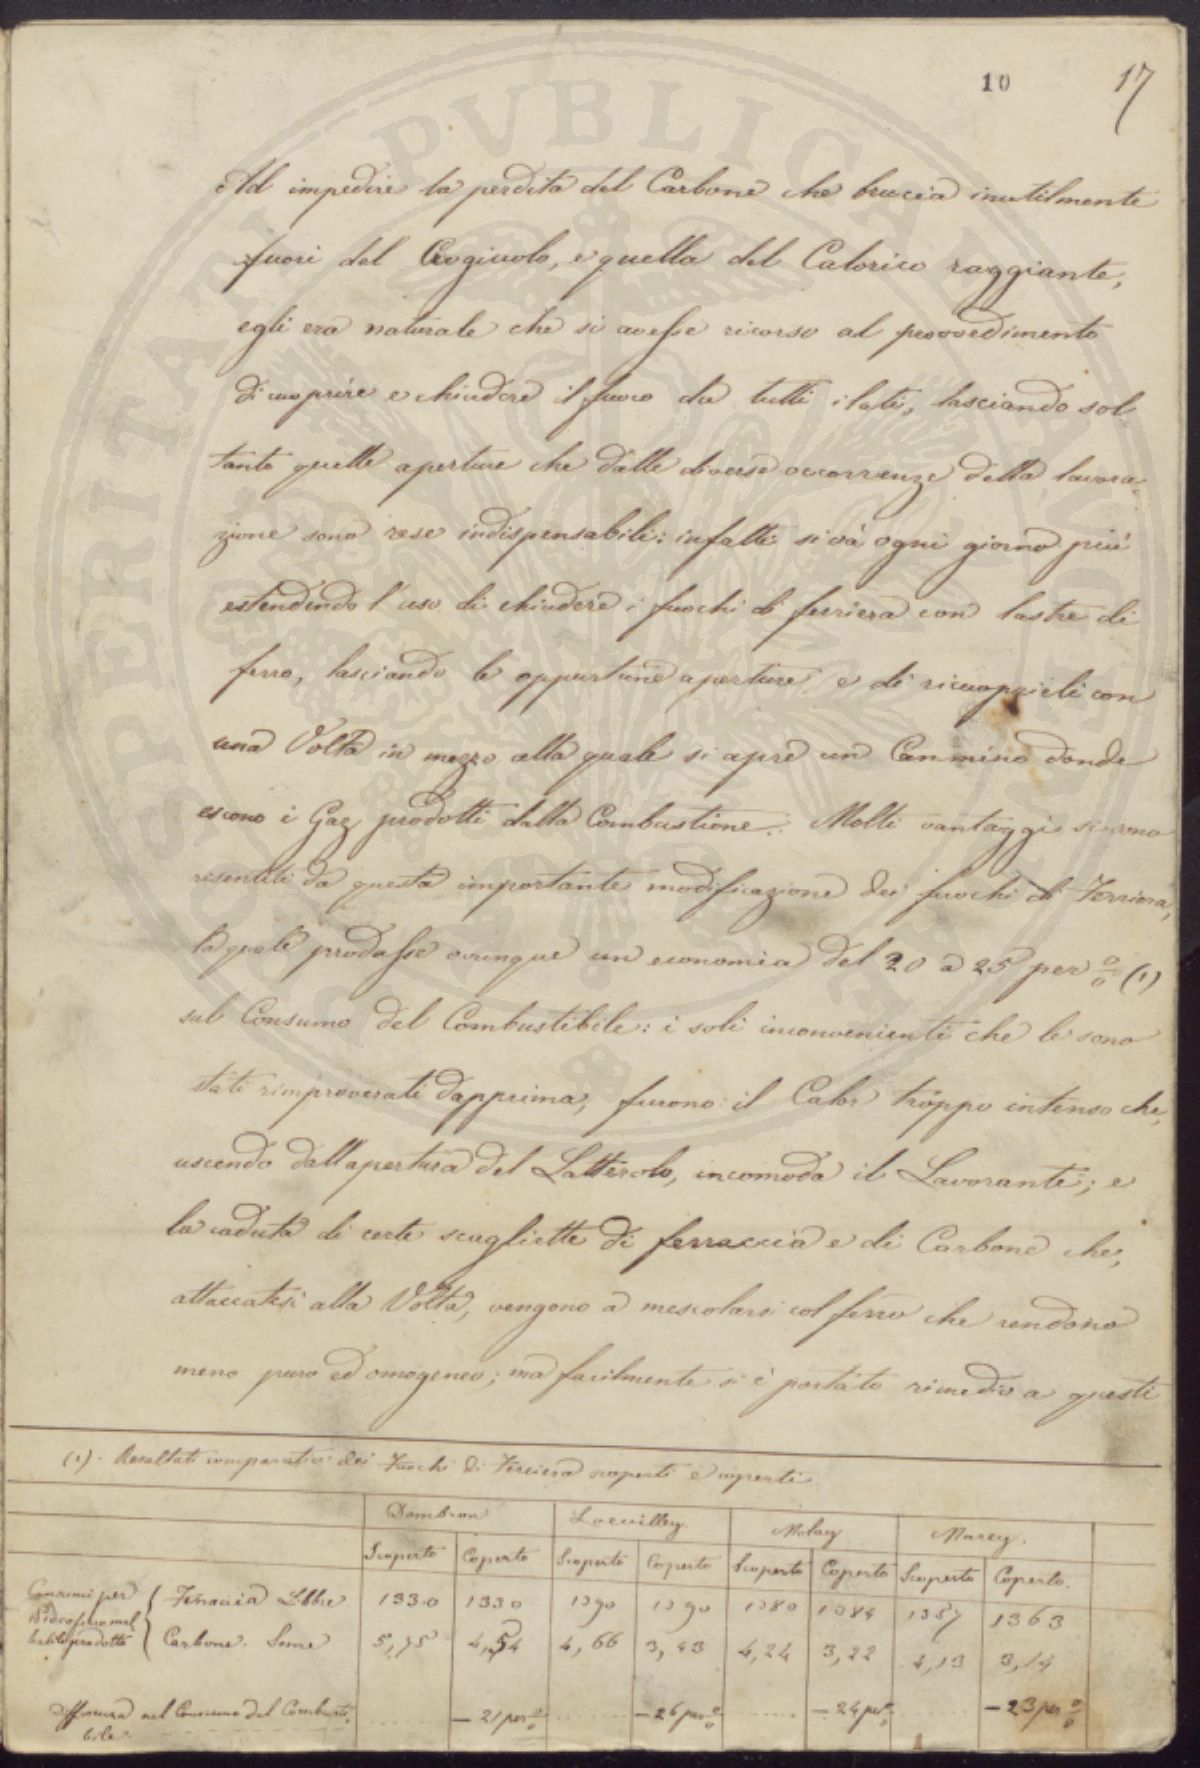 10 17
Ad impedire la perdita del Carbone che brucia inutilmente
fuori del Crogiuolo, e quella del Calorico raggiante,
egli era naturale che si avesse ricorso al provvedimento
di cuoprire e chiudere il fuoco da tutti i lati, lasciando sol-
tanto quelle aperture che dalle diverse occorrenze della lavora-
zione sono rese indispensabili: infatti si và ogni giorno più
estendendo l'uso di chiudere i fuochi di ferriera con lastre di
ferro, lasciando le opportune aperture, e di ricuoprirli con
una Volta in mezzo alla quale si apre un Cammino donde
escono i Gaz prodotti dalla Combustione. Molti vantaggi si sono
risentiti da questa importante modificazione dei fuochi di Ferriera,
la quale produsse ovunque un economia del 20 a 25 per % (1)
sul Consumo del Combustibile: i soli inconvenienti che le sono
stati rimproverati dapprima, furono: il Calor troppo intenso che,
uscendo dall'apertura del Latterolo, incomoda il Lavorante; e
la caduta di certe scagliette di ferraccia e di Carbone che,
attaccatesi alla Volta, vengono a mescolarsi col ferro che rendono
meno puro ed omogeneo; ma facilmente si è portato rimedio a questi
(1). Resultati comparativi dei Fuochi di Ferriera scoperti e coperti
Dombron Loeuilley Molay Marey.
Scoperto Coperto Scoperto Coperto Scoperto Coperto Scoperto Coperto.
Consumi per
Ferraccia Libbre 1330 1330 1390 1390 1380 1384 1387 1363
prodotto Carbone. Some 5,75 4,54 4,66 3,43 4,24 3,22 4,13 3,14
Differenza nel Consumo del Combusti-
bile. – 21 per % – 26 per % – 24 per % – 23 per %